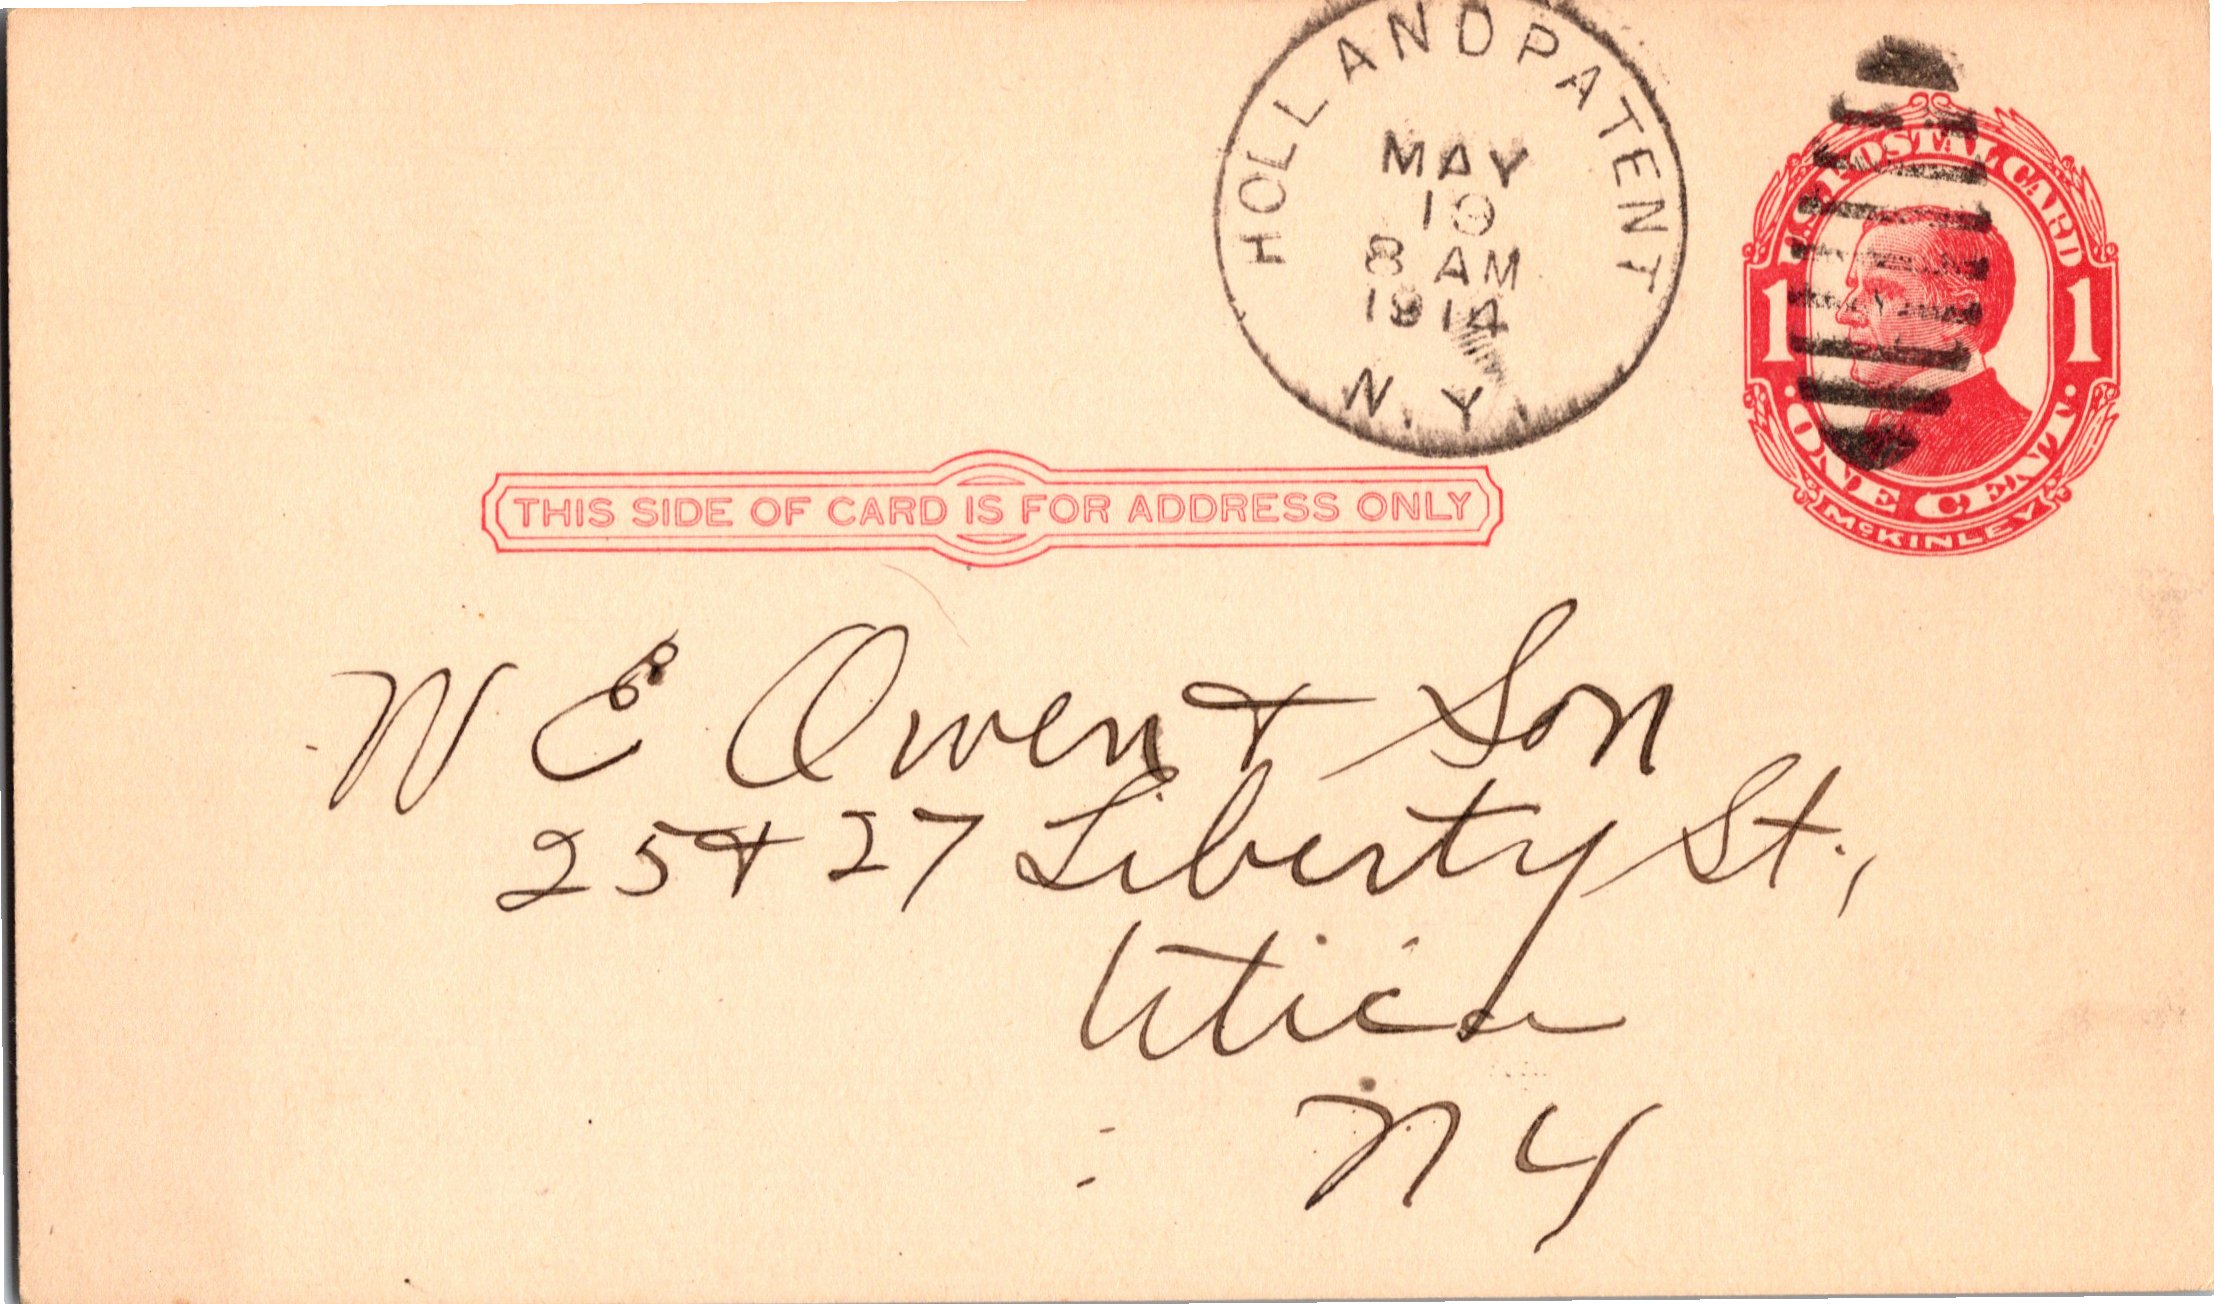 HOLLAND PATENT
MAY
19
8 AM
1914
N.Y.
U.S. POSTAL CARD
1 1
·ONE CENT·
McKINLEY
THIS SIDE OF CARD IS FOR ADDRESS ONLY
W E Owen & Son
25 & 27 Liberty St.,
Utica
N Y